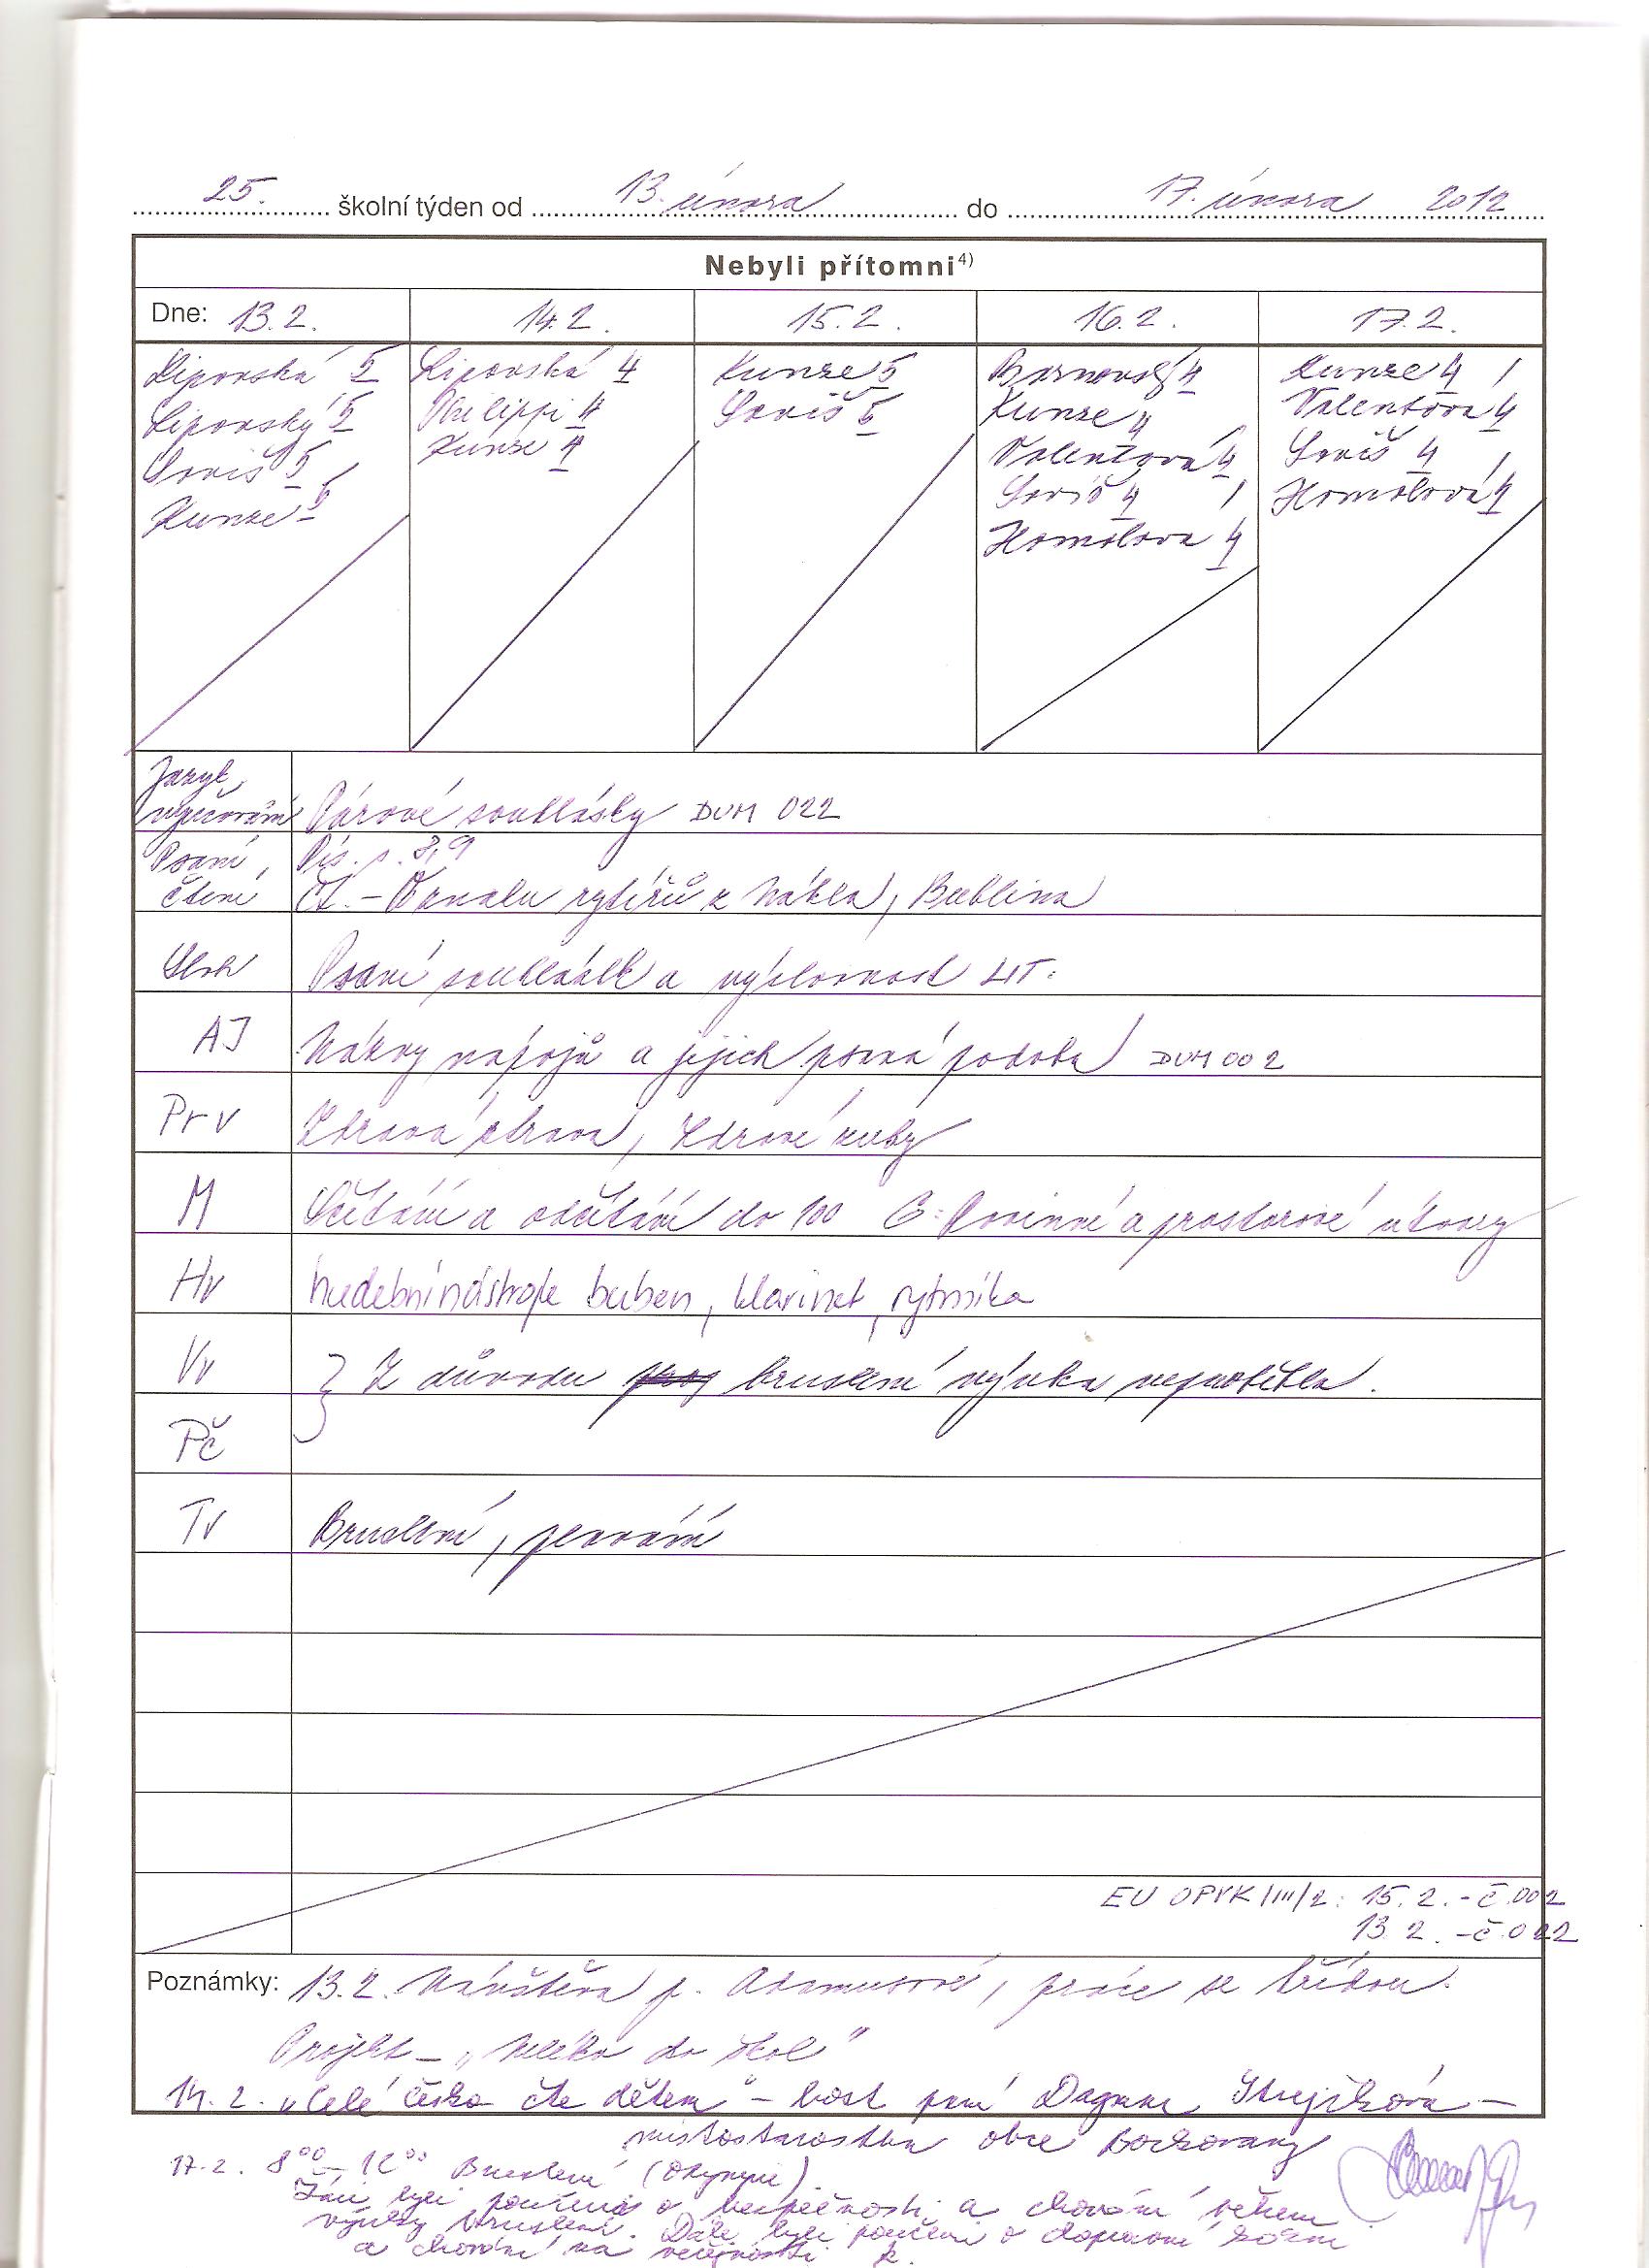 25. školní týden od 13. února do 17. února 2012
Nebyli přítomni4)
Dne: 13.2. 14.2. 15.2. 16.2. 17.2.
Lipovská 5 Lipovská 4 Kunze 5 Kunze 4
Lipovský 5 Philippi 4 5 Kunze 4 Valentová 4
5 Kunze 4 Valentová 4 4
Kunze 5 4 Homolová 4
Homolová 4
Jazyk
Párové souhlásky DUM 022
Psaní, Pís. s. 8,9
čtení Čt. – rytířů z Bublina
Sloh Psaní souhlásk a výslovnost
AJ Názvy nápojů a jejich psaná podoba DUM 002
Prv Zdravá strava, Zdravé zuby
M Sčítání a odčítání do 100 G: Rovinné a prostorové útvary
Hv hudební nástroje buben, klarinet, rytmika
Vv Z důvodu bruslení výuka neproběhla.
Pč
Tv Bruslení, plavání
EU OPVK III/2: 15.2. - č.002
13.2. - č.022
Poznámky: 13.2. Návštěva p. Adamusové, práce se třídou.
Projekt – „Mléko do škol"
14.2. „Celé Česko čte dětem" – host paní Dagmar –
místostarostka obce
17.2. 8 00 – 12 00 Bruslení
Žáci byli poučeni o bezpečnosti a chování během
výuky bruslení. Dále byli poučeni o dopravní kázni
a chování na veřejnosti